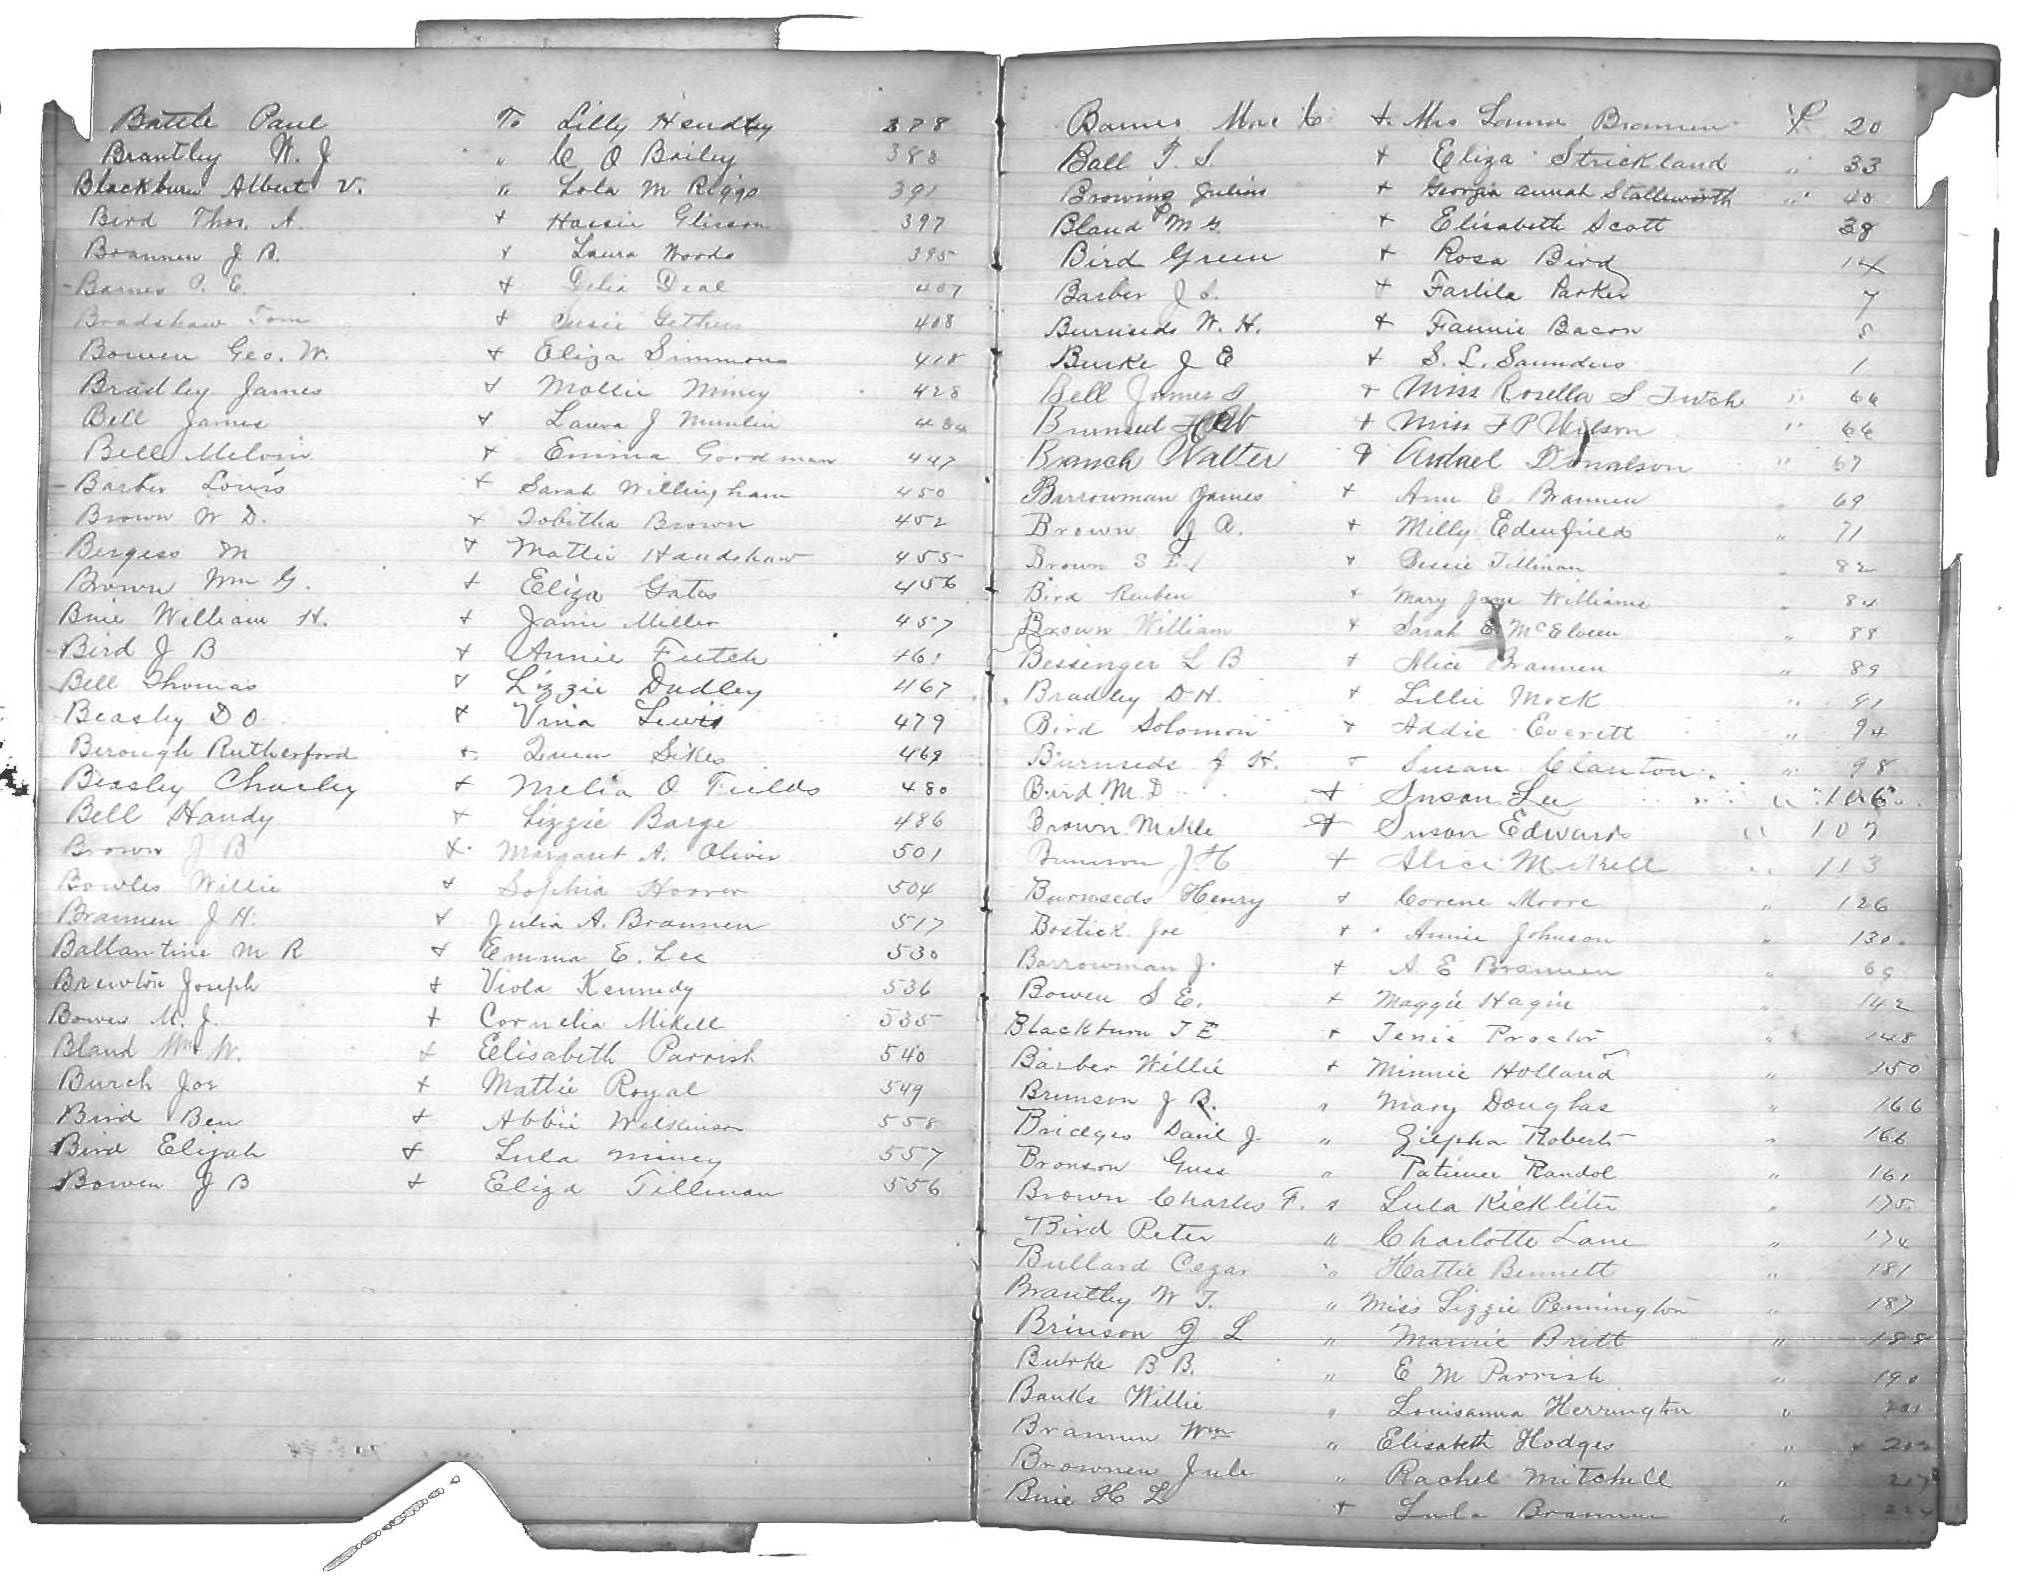 Battle Paul To Lilly Hendley 378
Brantley W. J " C O Bailey 383
Blackburn Albert V. " Lola M Riggs 391
Bird Thos. A. + Hassie Glisson 397
Brannen J B. + Laura Woods 395
Barnes P. E. + Delia Deal 407
Bradshaw Tom + Susie Gethers 408
Bowen Geo. W. + Eliza Simmons 418
Bradley James + Mollie Mincy 428
Bell James + Laura J Numlin
Bell Melvin + Emma Goodman 447
Barber Louis + Sarah Willingham 450
Brown W D. + Tobitha Brown 452
Bergess M + Mattie Handshaw 455
Brown Wm G. + Eliza Gates 456
Brie William H. + Janie Miller 457
Bird J B + Annie Futch 461
Bell Thomas + Lizzie Dudley 467
Beasly D O + Vina Lewis 479
Berough Rutherford + Queen Sikes 469
Beasley Charley + Melia O Fields 480
Bell Handy + Lizzie Barge 486
Brown J B + Margaret A. Oliver 501
Bowles Willie + Sophia Hoover 504
Brannen J H. + Julia A. Brannen 517
Ballantine M R + Emma E. Lee 530
Brewton Joseph + Viola Kennedy 536
Bowen M. J. + Cornelia Mikell 535
Bland Wm W. + Elisabeth Parrish 540
Burch Joe + Mattie Royal 549
Bird Ben + Abbie Wilkinson 558
Bird Elijah + Lula Mincy 557
Bowen J B + Eliza Tillman 556
Barnes Mac C + Mrs Laura Brannen P 20
Ball T. S. + Eliza Strickland " 33
Browing Julius + Georgia Annah Stallsworth " 40
Bland M G. + Elisabeth Scott 38
Bird Green + Rosa Bird 14
Barber J S. + Farlila Parker 7
Burnseds W. H. + Fannie Bacon 8
Burke J E + S. L. Saunders 1
Bell James S + Miss Rosella S Futch " 66
Burnsed + Miss F P Wilson " 66
Branch Walter + Ardael Donalson " 67
Barrowman James + Ann E Brannen " 69
Brown J A. + Milly Edenfield " 71
Brown S E + Bessie Tillman " 82
Bird Reuben + Mary Jane Williams " 84
Brown William + Sarah E McElveen " 88
Bessenger L B + Alice Brannen " 89
Bradley D H. + Lillie Mock " 91
Bird Solomon + Addie Everett " 94
Burnseds J H. + Susan Clanton " 98
Bird M D + Susan Lee " 106
Brown Mikle + Susan Edwards " 107
Brunson J H + Alice Mikell " 113
Burnseds Henry + Corene Moore " 126
Bostick Joe + Annie Johnson " 130
Barrowman J. + A E Brannen " 69
Bowen S E. + Maggie Hagin " 142
Blackburn T E + Jenie Proctor " 148
Barber Willie + Minnie Holland " 150
Brunson J R. " Mary Douglas " 166
Bridges Danil J " Zilpha Roberts " 166
Bronson Guss " Patience Randol " 161
Brown Charles F. " Lula Kickliter " 175
Bird Peter " Charlotte Lane " 174
Bullard Cezar " Hattie Bennett " 181
Brantley W T. " Miss Lizzie Pennington " 187
Brinson J L " Mamie Britt " 188
Burke B B. " E M Parrish " 190
Banks Willie " Louisanna Herrington " 201
Brannen Wm " Elisabeth Hodges "
Brownen Jule " Rachel Mitchell " 217
Brie H L + Lula Brannen " 224